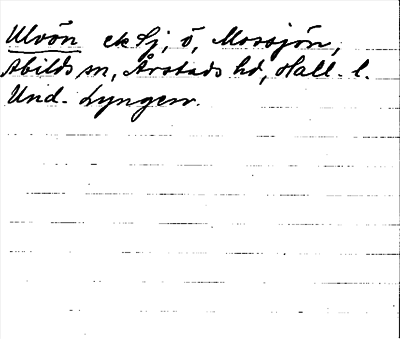 Ulvön ek Sj, ö, Mossjön,
Abilds sn, Årstads hd, Hall. l.
Und. Lyngen.